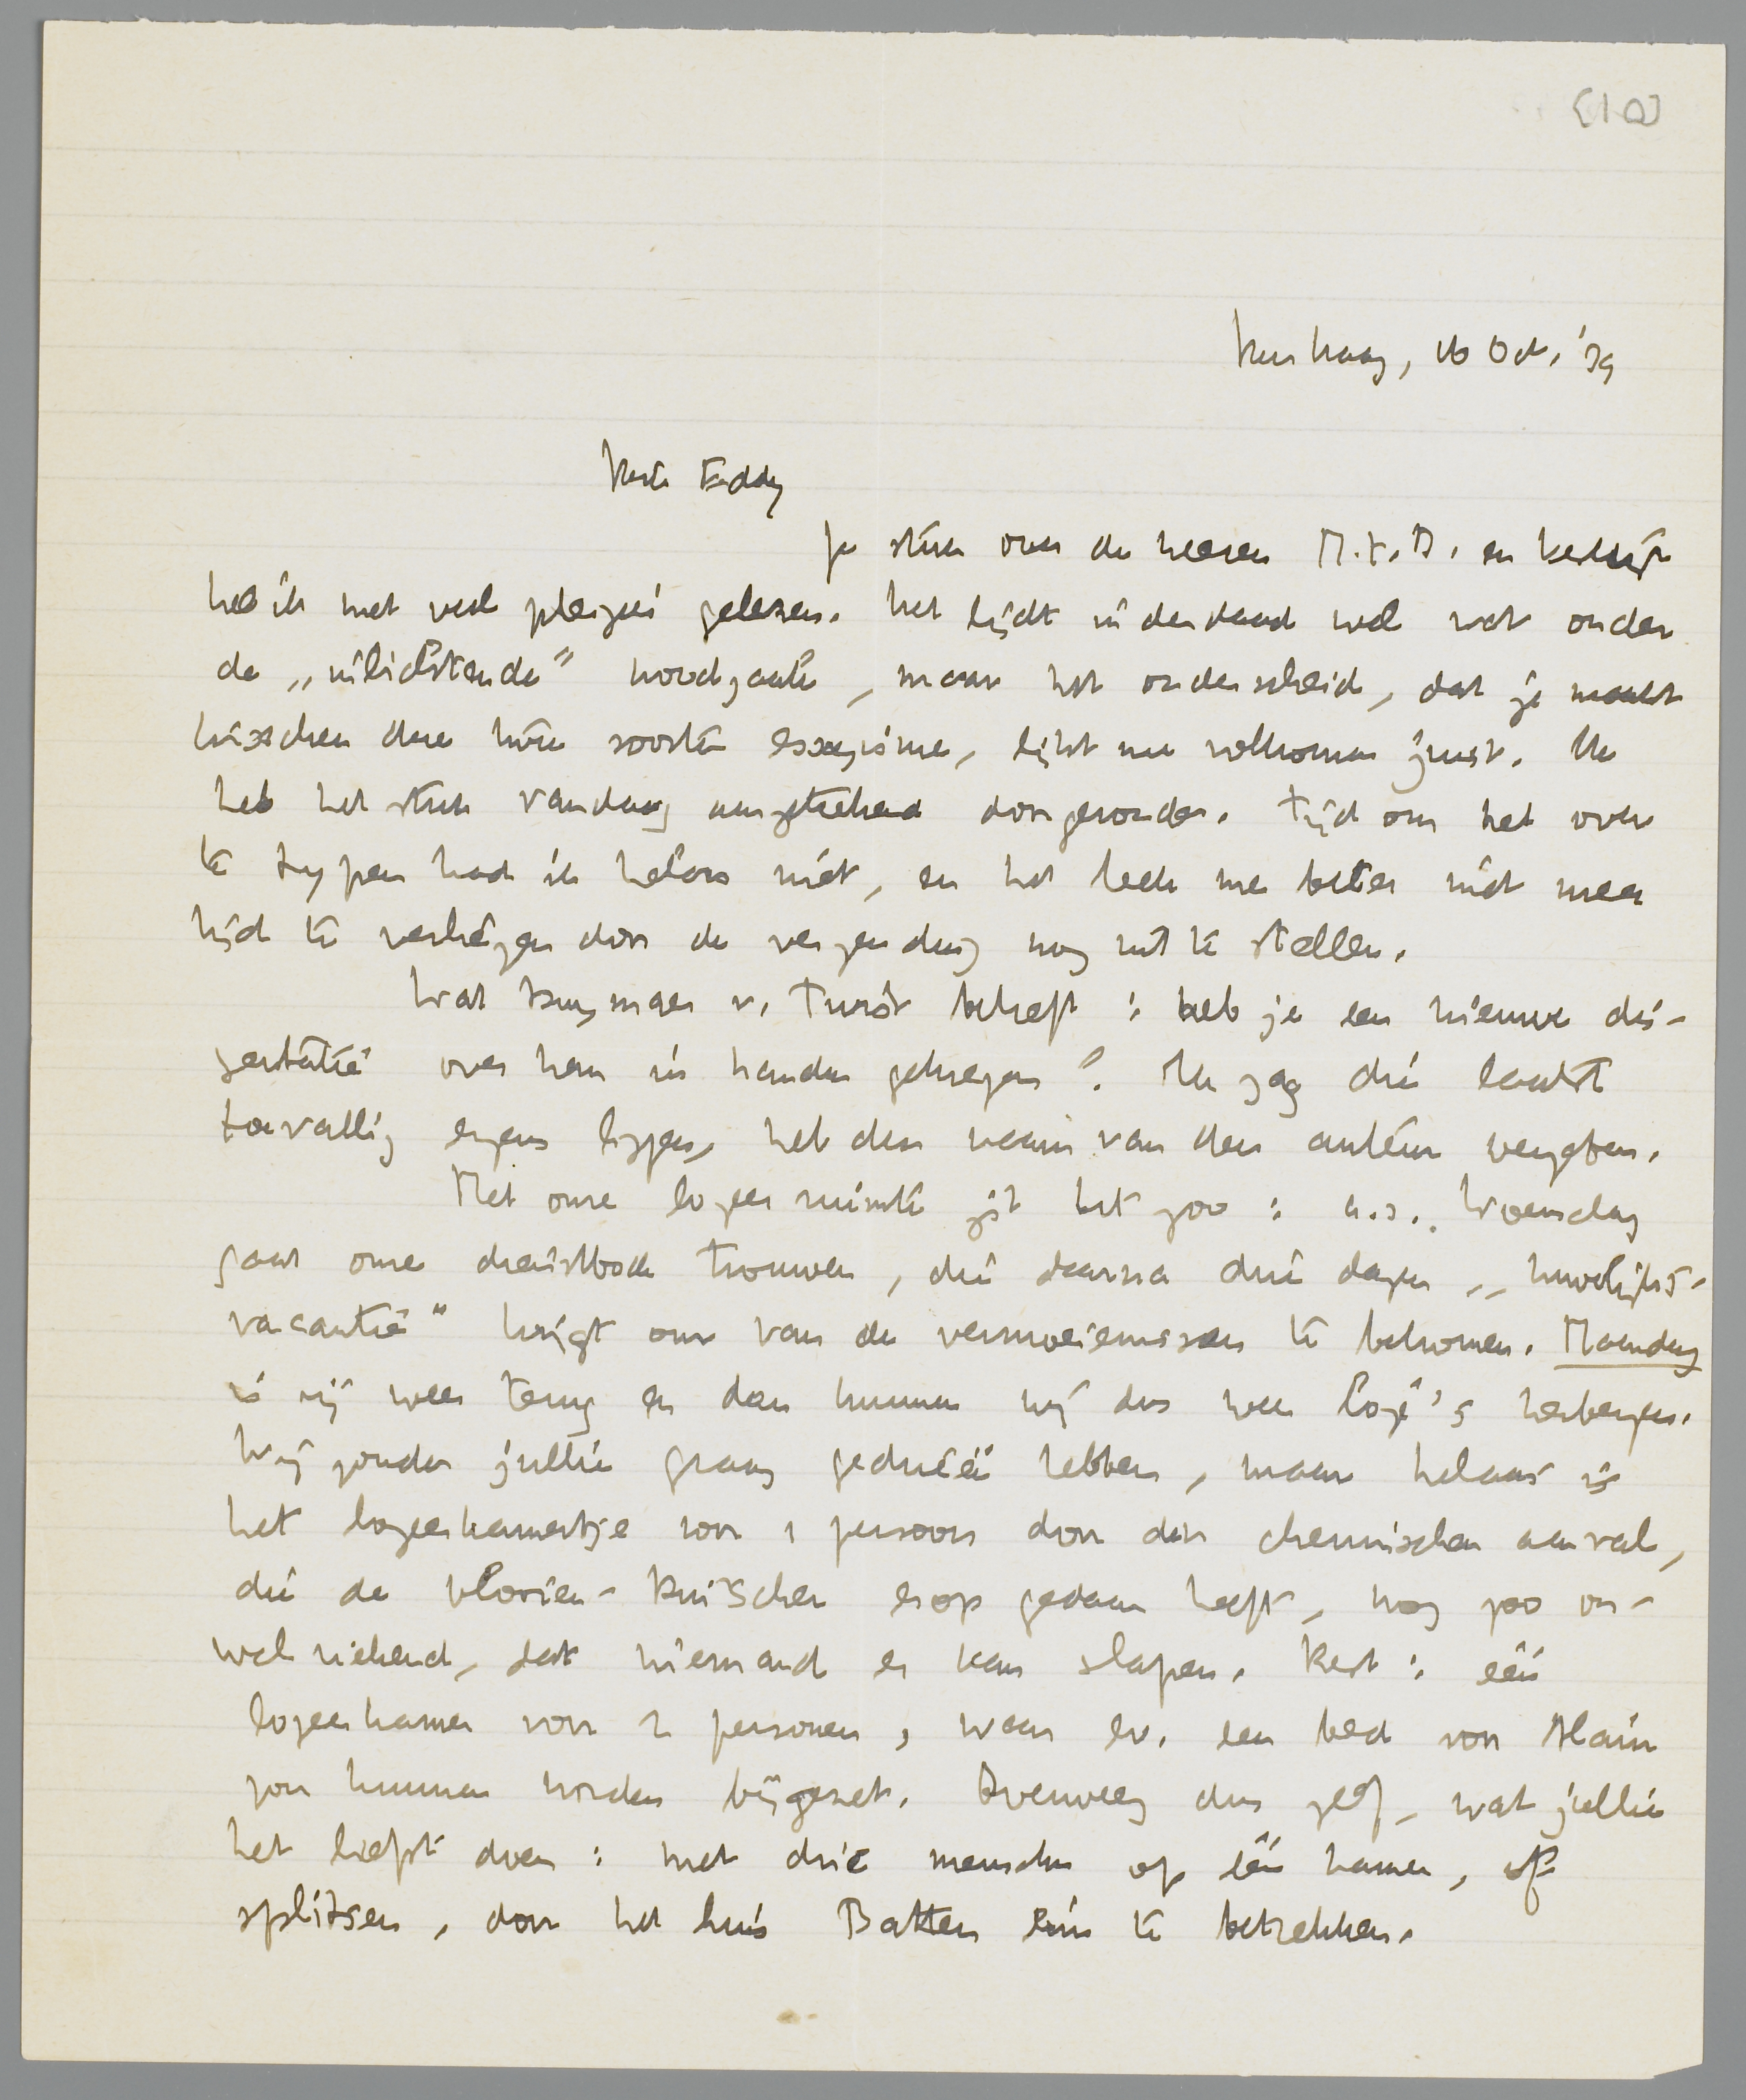 [10]
Den Haag, 16 Oct. '39
Beste Eddy
Je stuk over de heeren M.t.B. en
heb ik met veel pleizier gelezen. Het lijdt inderdaad wel wat onder
de „inlichtende" noodzaak, maar het onderscheid, dat je maakt
tusschen deze twee soorten essayisme, lijkt me volkomen juist. Ik
heb het stuk vandaag aangeteekend doorgezonden. Tijd om het over
te typen had ik helaas niet, en het leek me beter niet meer
tijd te verliezen door de verzending nog uit te stellen.
Wat Buysman v. Twist betreft: heb je een nieuwe dis-
sertatie over hem in handen gekregen? Ik zag die laatst
toevallig ergens liggen, heb den naam van den auteur vergeten.
Met onze logeerruimte zit het zoo: a.s. Woensdag
gaat onze dienstbode trouwen, die daarna drie dagen „huwelijks-
vacantie" krijgt om van de vermoeienissen te bekomen. Maandag
is zij weer terug en dan kunnen wij dus weer logé's herbergen.
Wij zouden jullie graag gedrieën hebben, maar helaas is
het logeerkamertje voor 1 persoon door den chemischen aanval,
die de vlooien-Kuischer erop gedaan heeft, nog zoo on-
welriekend, dat niemand er kan slapen. Rest: één
logeerkamer voor 2 personen, waar ev. een bed voor Alain
zou kunnen worden bijgezet. Overweeg dus zelf, wat jullie
het liefst doen: met drie menschen op één kamer, of
splitsen, door het huis Batten erin te betrekken.